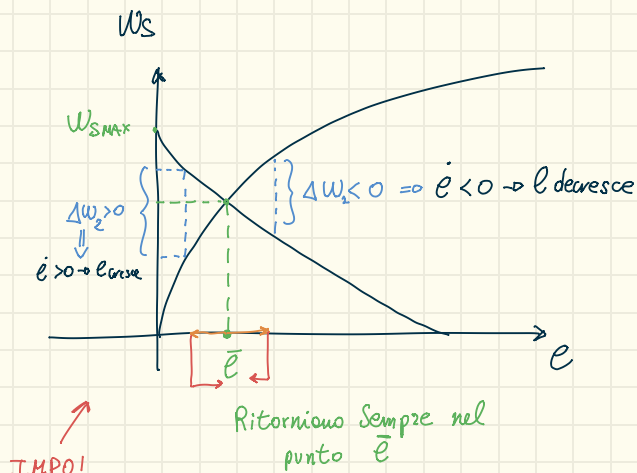 Ws
WSMAX
ΔW₂>0
⇓
ė >0 → e cresce
ΔW₂<0 ⇒ ė <0 → e decresce
e
ē
Ritorniamo Sempre nel
punto ē
IMPO!